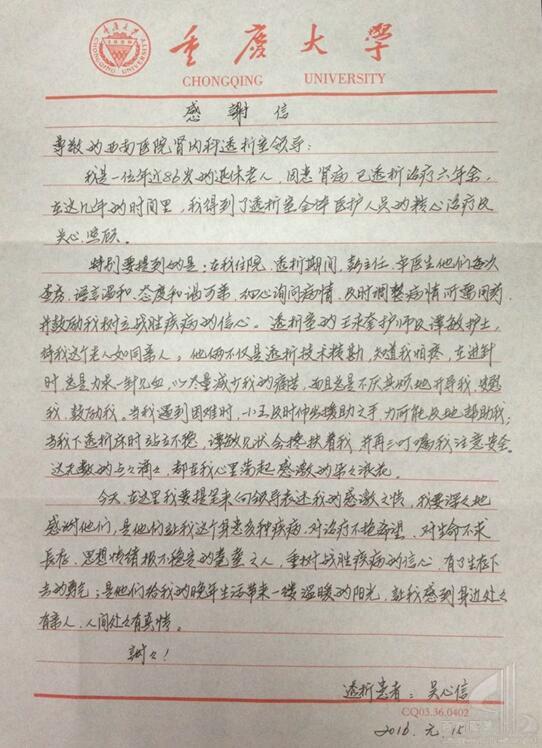 重庆大学
CHONGQING UNIVERSITY
感謝信
尊敬的西南医院肾内科透析室领导：
我是一位年近86岁的退休老人，因患肾病已透析治疗六年余，
在这几年的时间里，我得到了透析室全体医护人员的精心治疗及
关心照顾。
特别要提到的是：在我住院、透析期间，彭主任、牟医生他们每次
查房，语言温和、态度和谒可亲，细心询问病情，及时调整病情所需用药，
并鼓励我树立战胜疾病的信心。透析室的王来奎护师及谭敏护士，
待我这个老人如同亲人，他俩不仅是透析技术精勘，知道我怕疼，在进针
时总是力求一针见血，以尽量减少我的痛苦，而且总是不厌其烦地开导我、安慰
我、鼓励我。当我遇到困难时，小王及时伸出援助之手，力所能及地帮助我；
当我下透析床时站立不稳，谭敏见状会搀扶着我，并再三叮嘱我注意安全。
这无数的点々滴々都在我心里荡起感激的朵々浪花。
今天，在这里我要提笔来向领导表述我的感激之情，我要深々地
感谢他们，是他们让我这个身患多种疾病，对治疗不抱希望，对生命不求
長存，思想情绪极不稳定的耄耋之人，重树战胜疾病的信心，有了生存下
去的勇气；是他们给我的晚年生活带来一缕温暖的阳光，让我感到身边处々
有亲人，人间处々有真情。
謝々！
透析患者：吴心信
CQ03.36.0402
2016.元.15